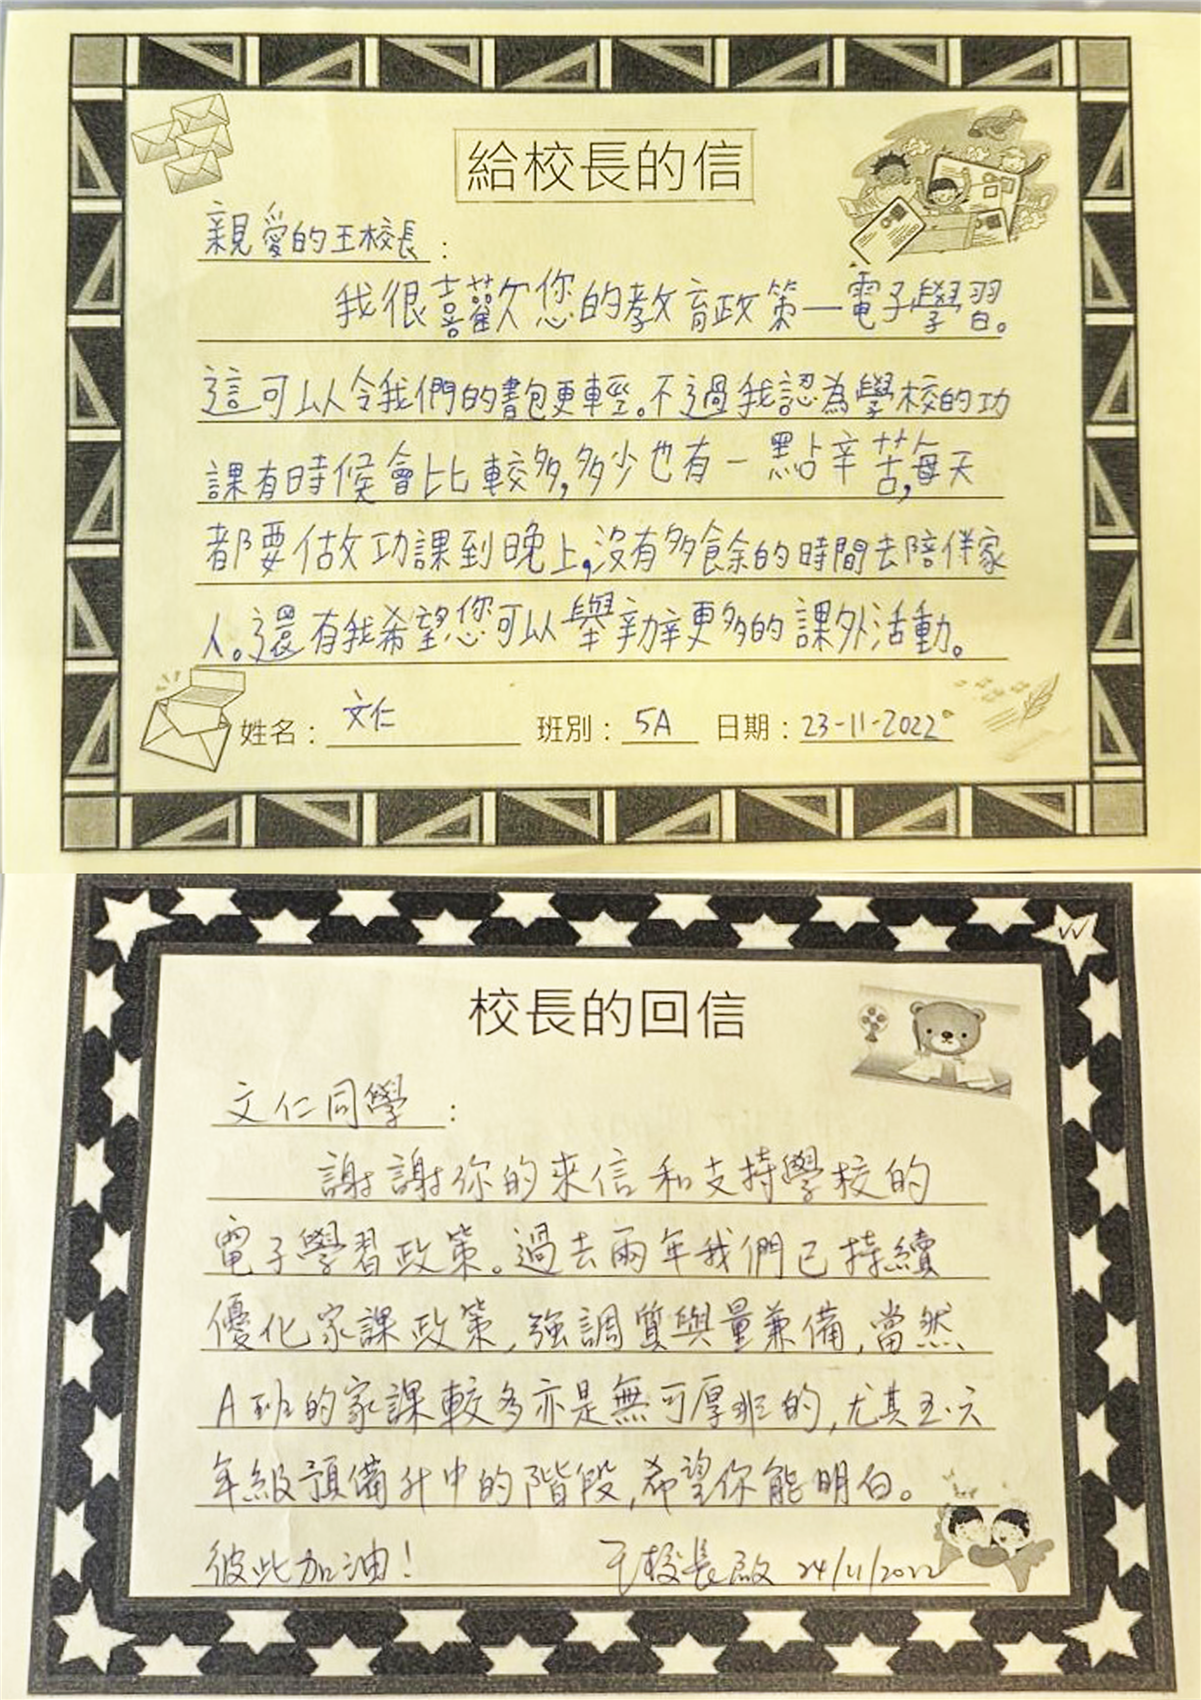 給校長的信
親愛的王校長：
我很喜歡您的教育政策—電子學習。
這可以令我們的書包更輕。不過我認為學校的功
課有時候會比較多，多少也有一點辛苦，每天
都要做功課到晚上，沒有多餘的時間去陪伴家
人。還有我希望您可以舉辦更多的課外活動。
姓名：文仁 班別：5A 日期：23-11-2022
校長的回信
文仁同學：
謝謝你的來信和支持學校的
電子學習政策。過去兩年我們已持續
優化家課政策，強調質與量兼備，當然
A班的家課較多亦是無可厚非的，尤其五、六
年級預備升中的階段，希望你能明白。
彼此加油！ 王校長啟 24/11/2022